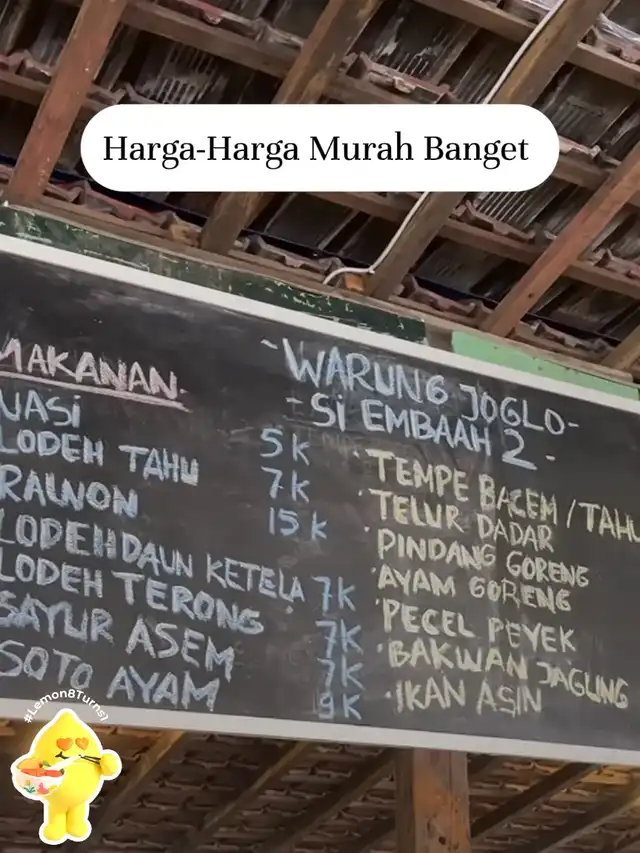 Harga-Harga Murah Banget
~WARUNG JOGLO-
-SI EMBAAH 2-
MAKANAN.
NASI 5K
LODEH TAHU 7K
RAWON 15K
LODEH DAUN KETELA 7K
LODEH TERONG 7K
SAYUR ASEM 7K
SOTO AYAM 9K
·TEMPE BACEM/TAHU
·TELUR DADAR
·PINDANG GORENG
·AYAM GORENG
·PECEL PEYEK
·BAKWAN JAGUNG
·IKAN ASIN
#Lemon8Turns1